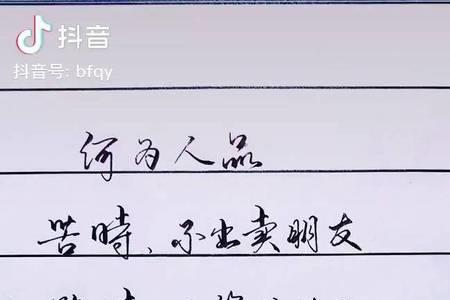 抖音
抖音号: bfqy
何为人品
苦時、不出卖朋友